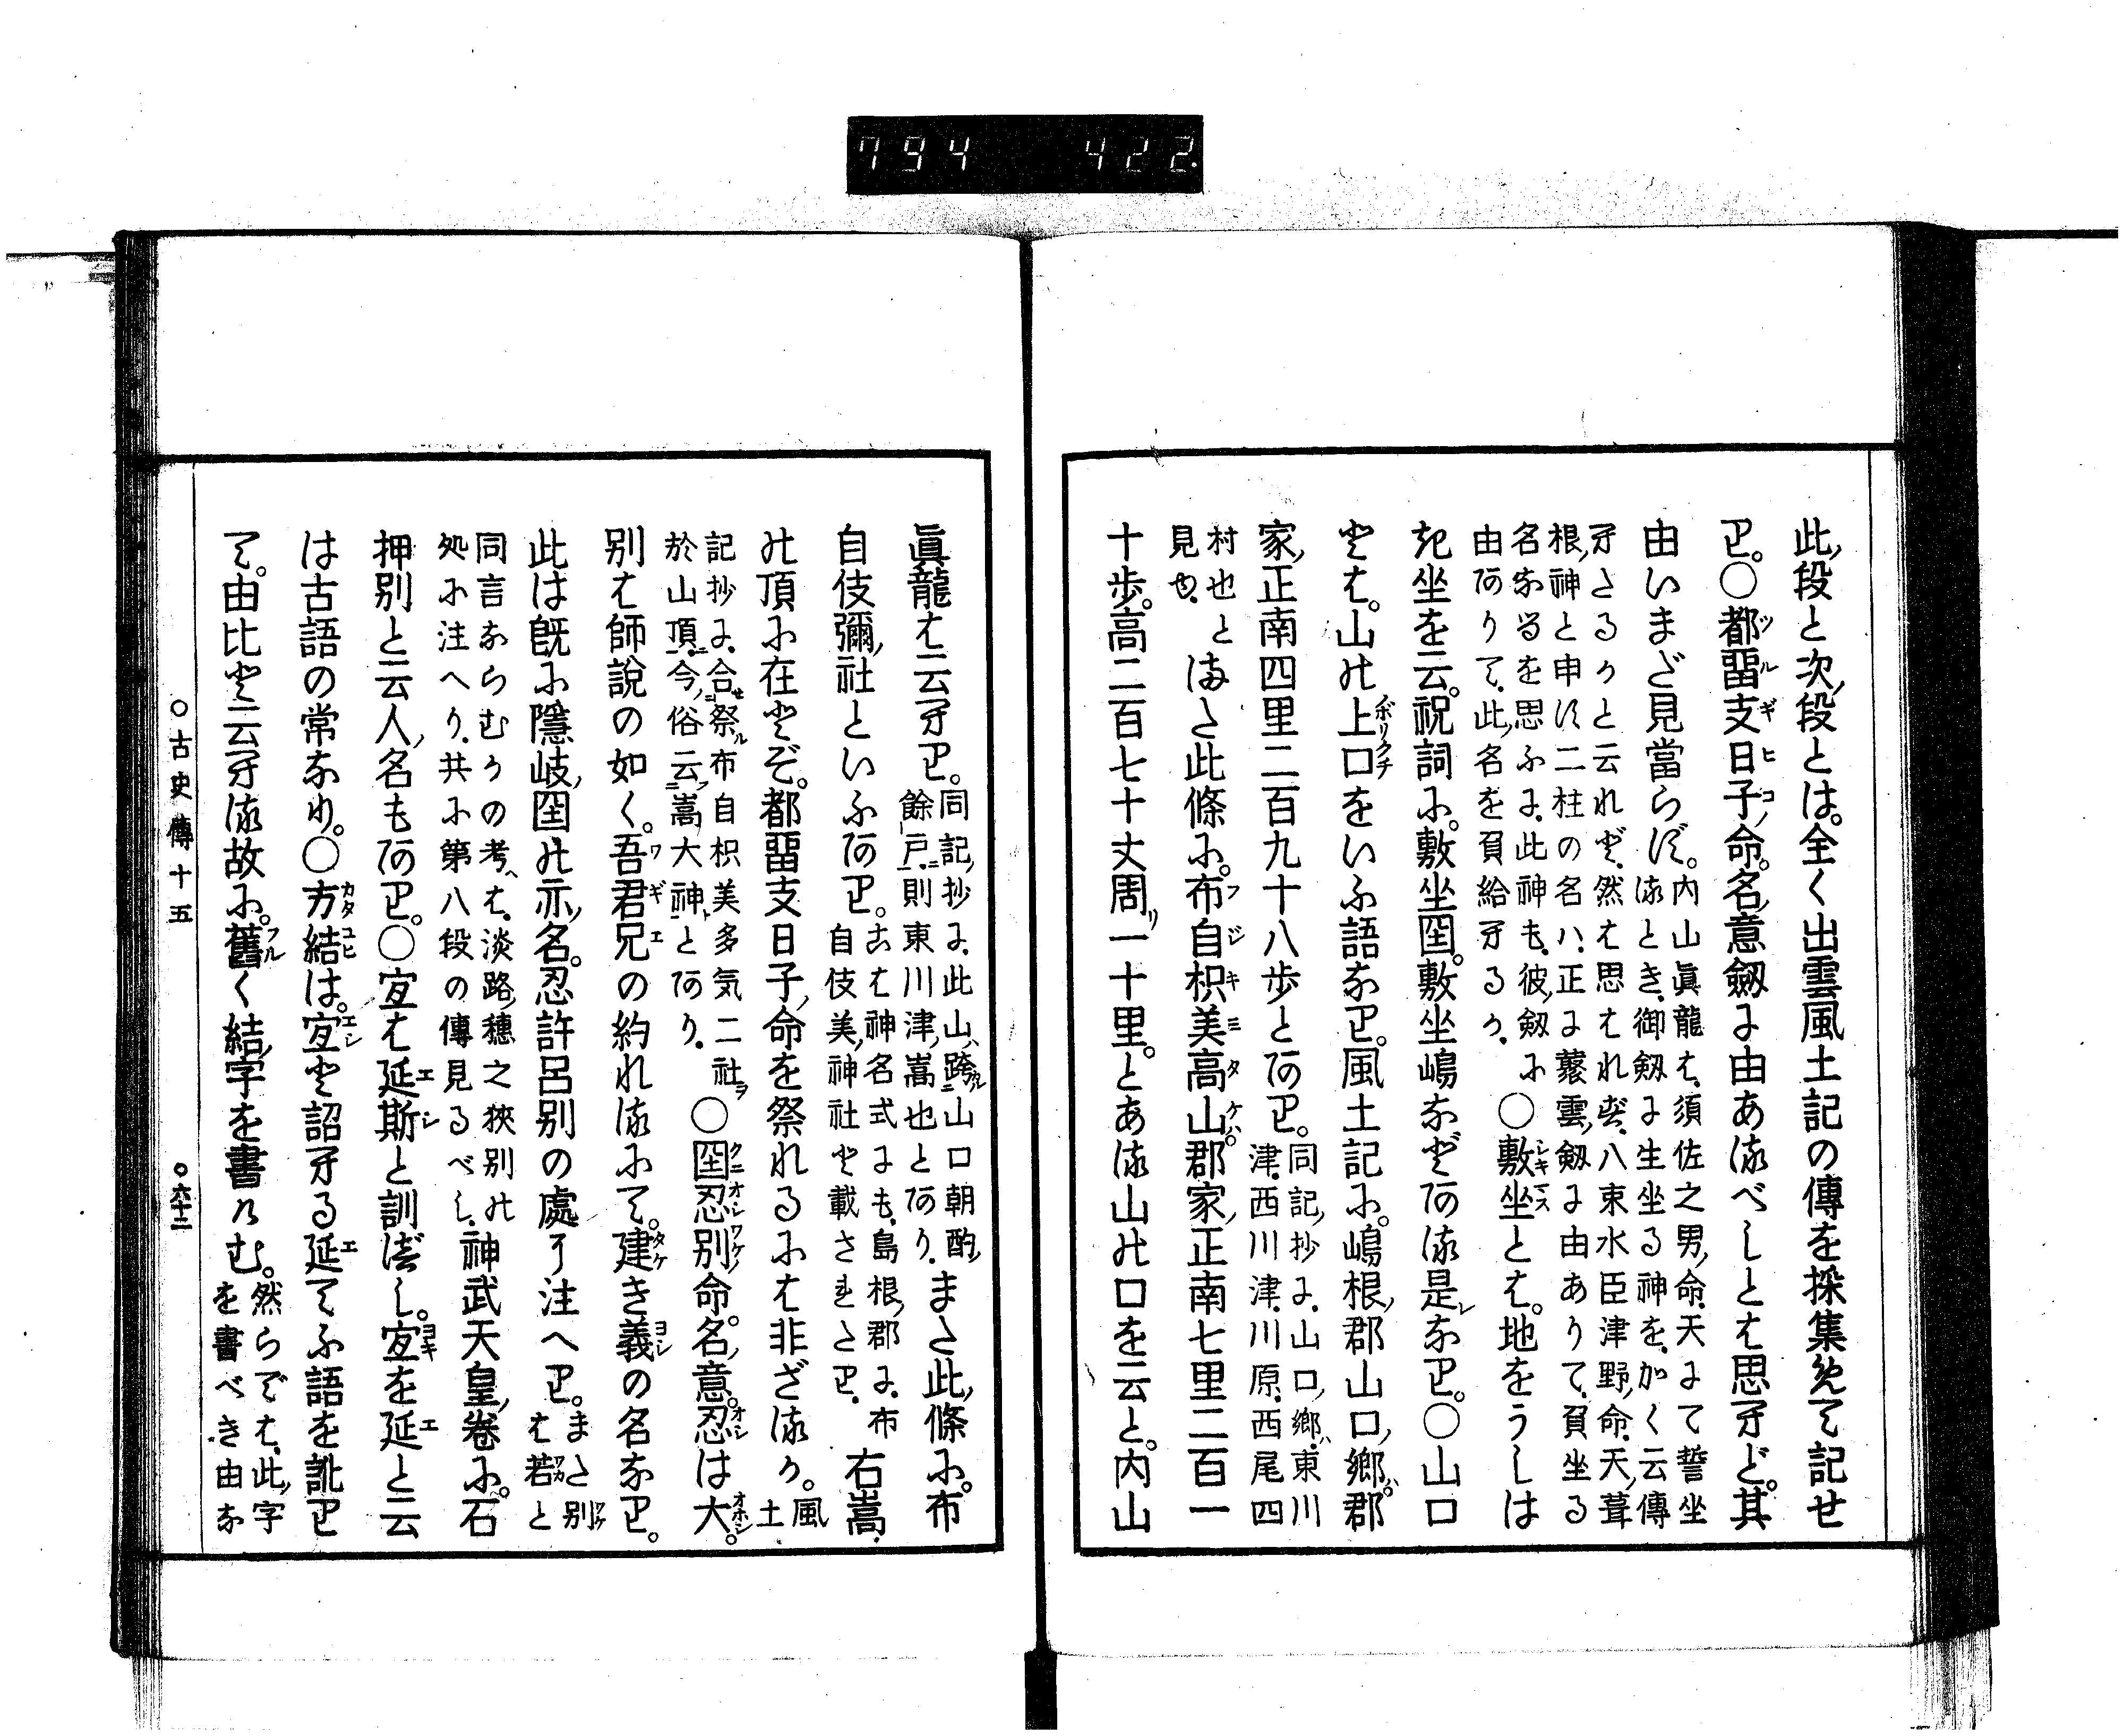 794 422
此段と次段とは。全く出雲風土記の傳を採集めて記せ
り。〇都留支日子命。名意劔に由あるべしとは思へど。其
由いまだ見當らず。内山眞龍は、須佐之男命、天にて誓坐
るとき、御劔に生坐る神を、如く云傳
へたるかと云れど、然は思はれず、八束水臣津野命、天葺
根神と申す二柱の名ハ、正に䕺雲劔に由ありて、負坐る
名なるを思ふに、此神も、彼劔に
由ありて、此名を負給へるか、
〇敷坐とは。地をうしは
き坐を云。祝詞に。敷坐国。敷坐嶋などある是なり。〇山口
とは。山の上口をいふ語なり。風土記に。嶋根郡山口郷。郡
家正南四里二百九十八歩とあり。同記抄に、山口郷ハ、東川
津、西川津、川原、西尾四
村也と
見ゆ、
また此條に。布自枳美高山郡家正南七里二百一
十歩。高二百七十丈周一十里。とある山の口を云と。内山
眞龍は云へり。同記抄に、此山ハ跨山口朝酌
餘戸、則東川津嵩也とあり、
また此條に。布
自伎彌社といふあり。こは神名式にも、島根郡に、布
自伎美神社と載されたり、
右嵩
の頂に在とぞ。都留支日子命を祭れるには非ざるか。風土
記抄に、合祭布自枳美多気二社ヲ
於山頂、今俗云嵩大神とあり、
〇国忍別命。名意。忍は大。
別は師説の如く。吾君兄の約れるにて。建き義の名なり。
此は既に隱岐国の亦名。忍許呂別の處に注へり。また別
は若と
同言ならむかの考へは、淡路穗之狹別の
処に注へり、共に第八段の傳見るべし、
神武天皇卷に。石
押別と云人名もあり。〇宜は延斯と訓べし。宜を延と云
は古語の常なり。〇方結は。宜と詔へる延てふ語を訛り
て。由比と云へる故に。舊く結字を書けむ。然らでは、此字
を書べき由な
〇古史傳十五
〇六十二